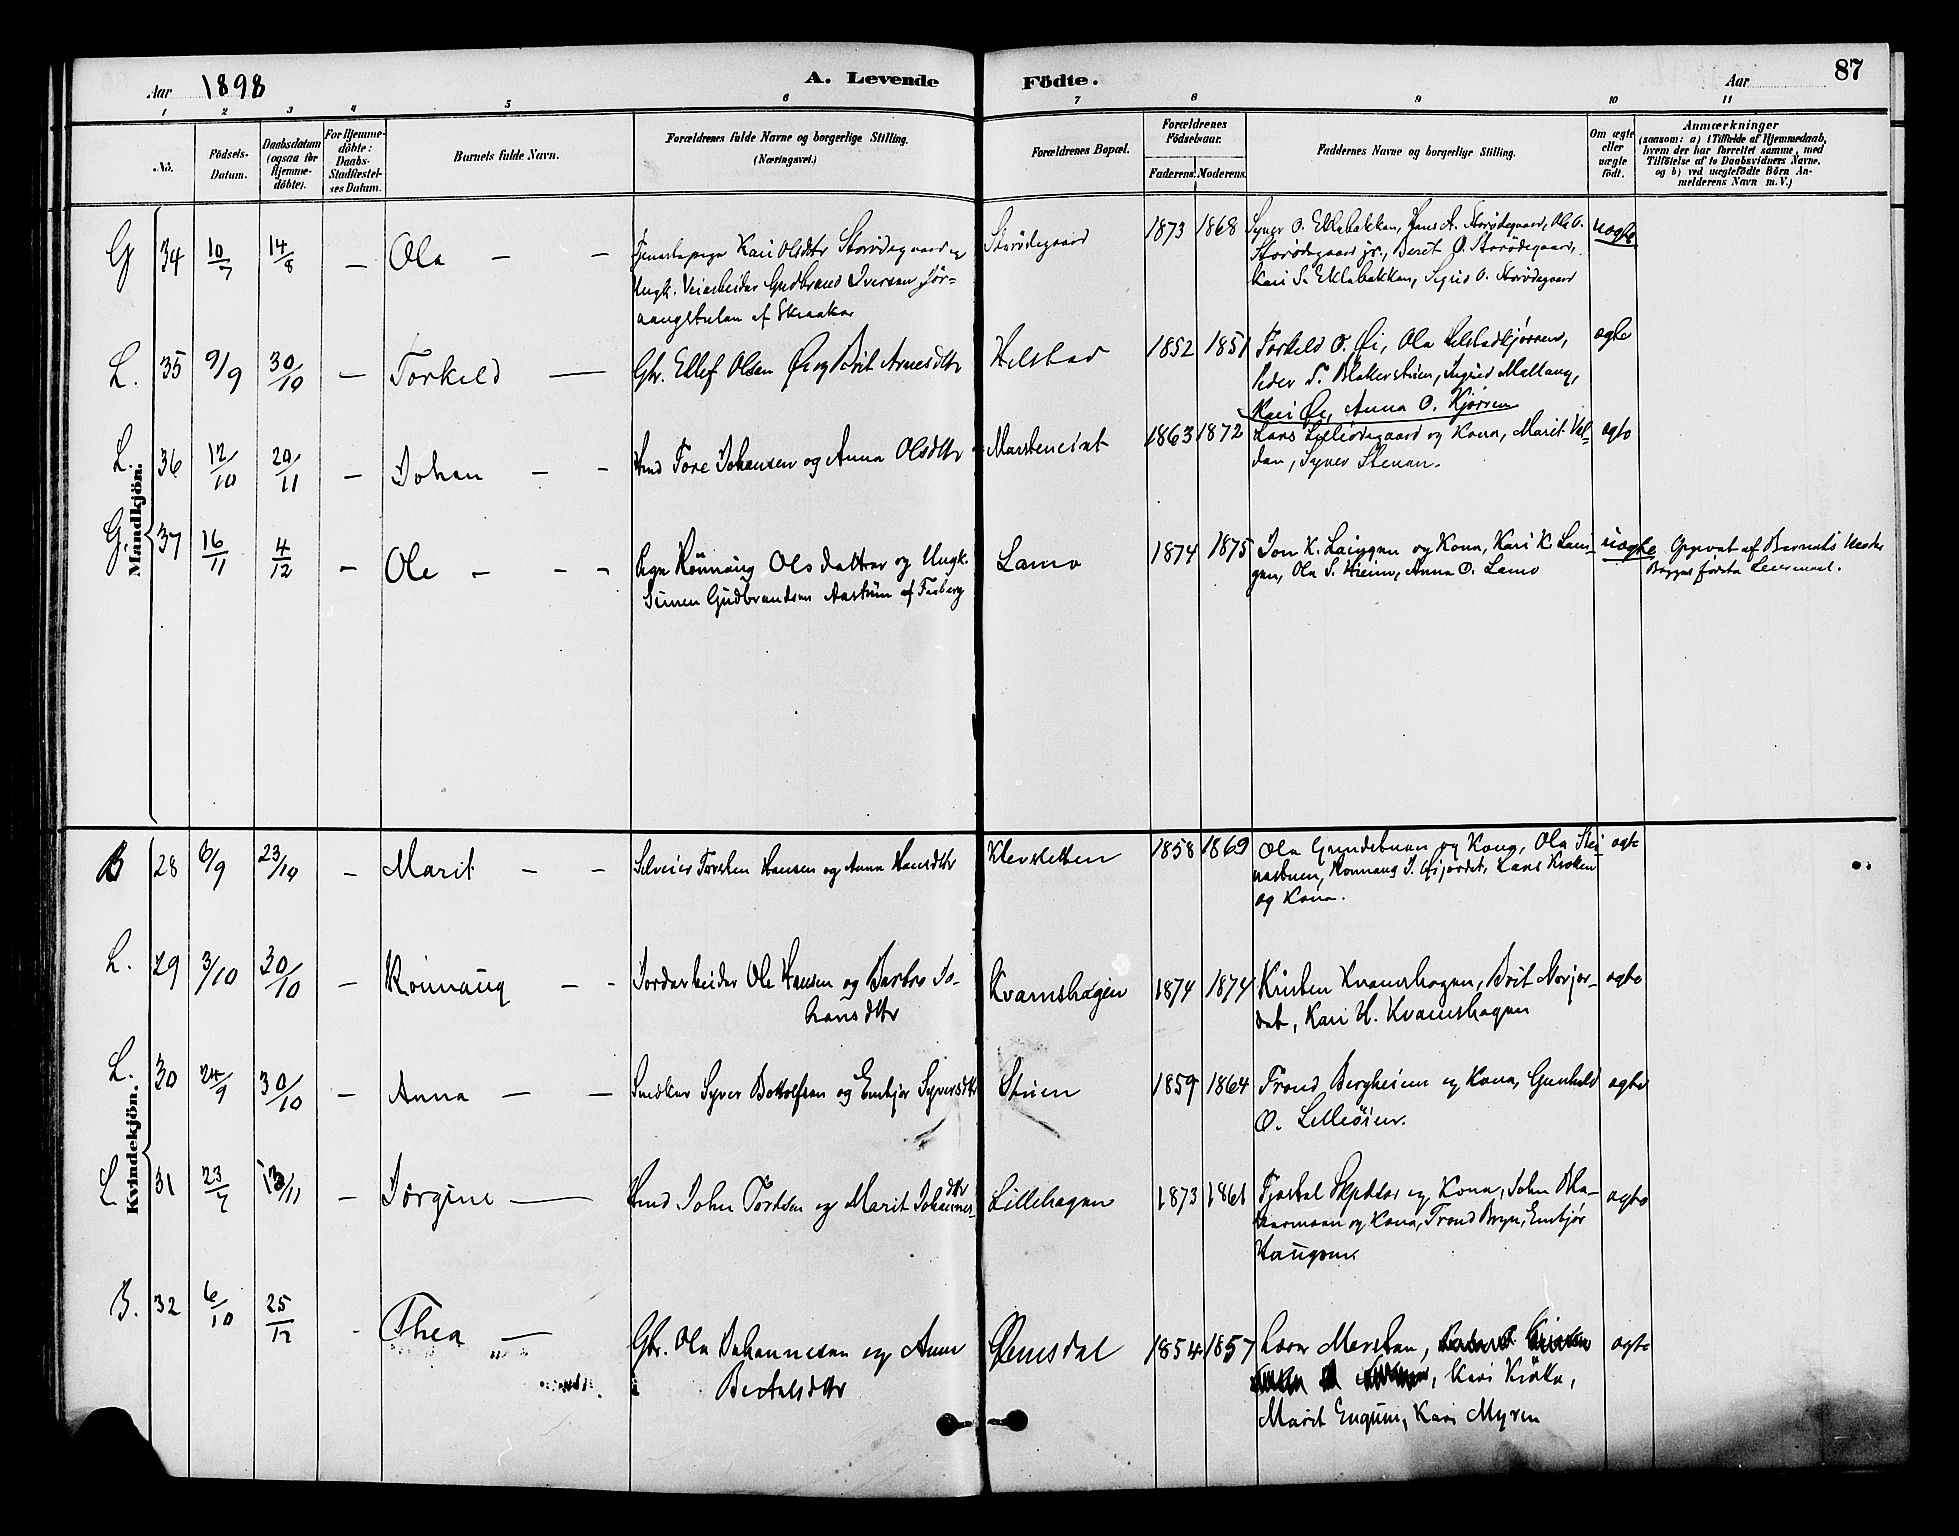 Aar 1898
A. Levende Födte.
Aar
87
1 2 3 4 5 6 7 8 9 10 11
No.
Födsels-
Datum.
Daabsdatum
(ogsaa for
Hjemme-
döbte).
For Hjemme-
döbte:
Daabs-
Stadfæstel-
ses Datum.
Barnets fulde Navn.
Forældrenes fulde Navne og borgerlige Stilling.
(Næringsvei.)
Forældrenes Bopæl.
Forældrenes
Födselsaar.
Faderens. Moderens.
Faddernes Navne og borgerlige Stilling.
Om ægte
eller
uægte
födt.
Anmærkninger
(saasom: a) i Tilfælde af Hjemmedaab,
hvem der har forrettet samme, med
Tilföielse af to Daabsvidners Navne,
og b) ved uægtefödte Börn An-
melderens Navn m. V.)
Mandkjön.
G 34 10/7 14/8 — Ola — —
Tjenestepige Kari Olsdtr Storødegaard og
Ungk. Veiarbeider Gudbrand Iversen Jör-
af Skaaker
Storødegaard
1873 1868
Syver O. Eklabakken, Hans A. Storødegaard, Ola O.
Storødegaard jr., Beret O. Storødegaard,
Kari S. Eklabakken, Sigrid O. Storødegaard
uægte
L. 35 9/9 30/10 — Torkeld —
Gbr. Ellef Olsen Øi og Brit Arnesdtr
Helstad
1852 1851
Torkeld O. Øi, Ola Helstadkjörren,
Peder T. Ingrid
Kari Øi, Anna O. Kjörren
ægte
L. 36 12/10 20/11 — Johan — —
Hmd Tore Johansen og Anna Olsdtr
1863 1872
Lars Lilleödegaard og Kona, Marit
Syver Stenen.
ægte
G. 37 16/11 4/12 — Ole — — —
Pige Rönnaug Olsdatter og Ungk.
Simen Gudbrandsen af Faaberg
Lamo
1874 1875
Jon K. og Kona, Kari K.
Ola S. Anna O. Lamo
uægte
Opgivet af Barnets
Begges förste Leiermaal.
Kvindekjön.
B 28 6/9 23/10 — Marit — —
Selveier Torsten Hansen og Anna Hansdtr
Klevsletten
1858 1869
Ola og Kona, Ola
Ronnaug J. Lars Kroken
og Kona.
ægte
L. 29 3/10 30/10 — Rönnaug — —
Jordarbeider Ole Hansen og Barbro Jo-
hansdtr
Kvamshagen
1874 1874
Kristen Kvamshagen, Brit Norjor-
det, Kari H. Kvamshagen
ægte
L. 30 24/9 30/10 — Anna — —
Snedker Syver Bottolfsen og Embjör Syversdtr
Stuen
1859 1864
Trond Bergheim og Kona, Gunhild
O. Lilleöien.
ægte
L 31 23/7 13/11 — Jörgine —
Hmd John Tordsen og Marit Johannes-
dtr
Lillehagen
1873 1861
og Kona, John
og Kona, Trond Bryn, Embjör
Haugom.
ægte
B. 32 6/10 25/12 - Thea —
Gbr. Ola Johannesen og Anne
Bertelsdtr
1854 1857
Kari
Marit Kari Myren
ægte